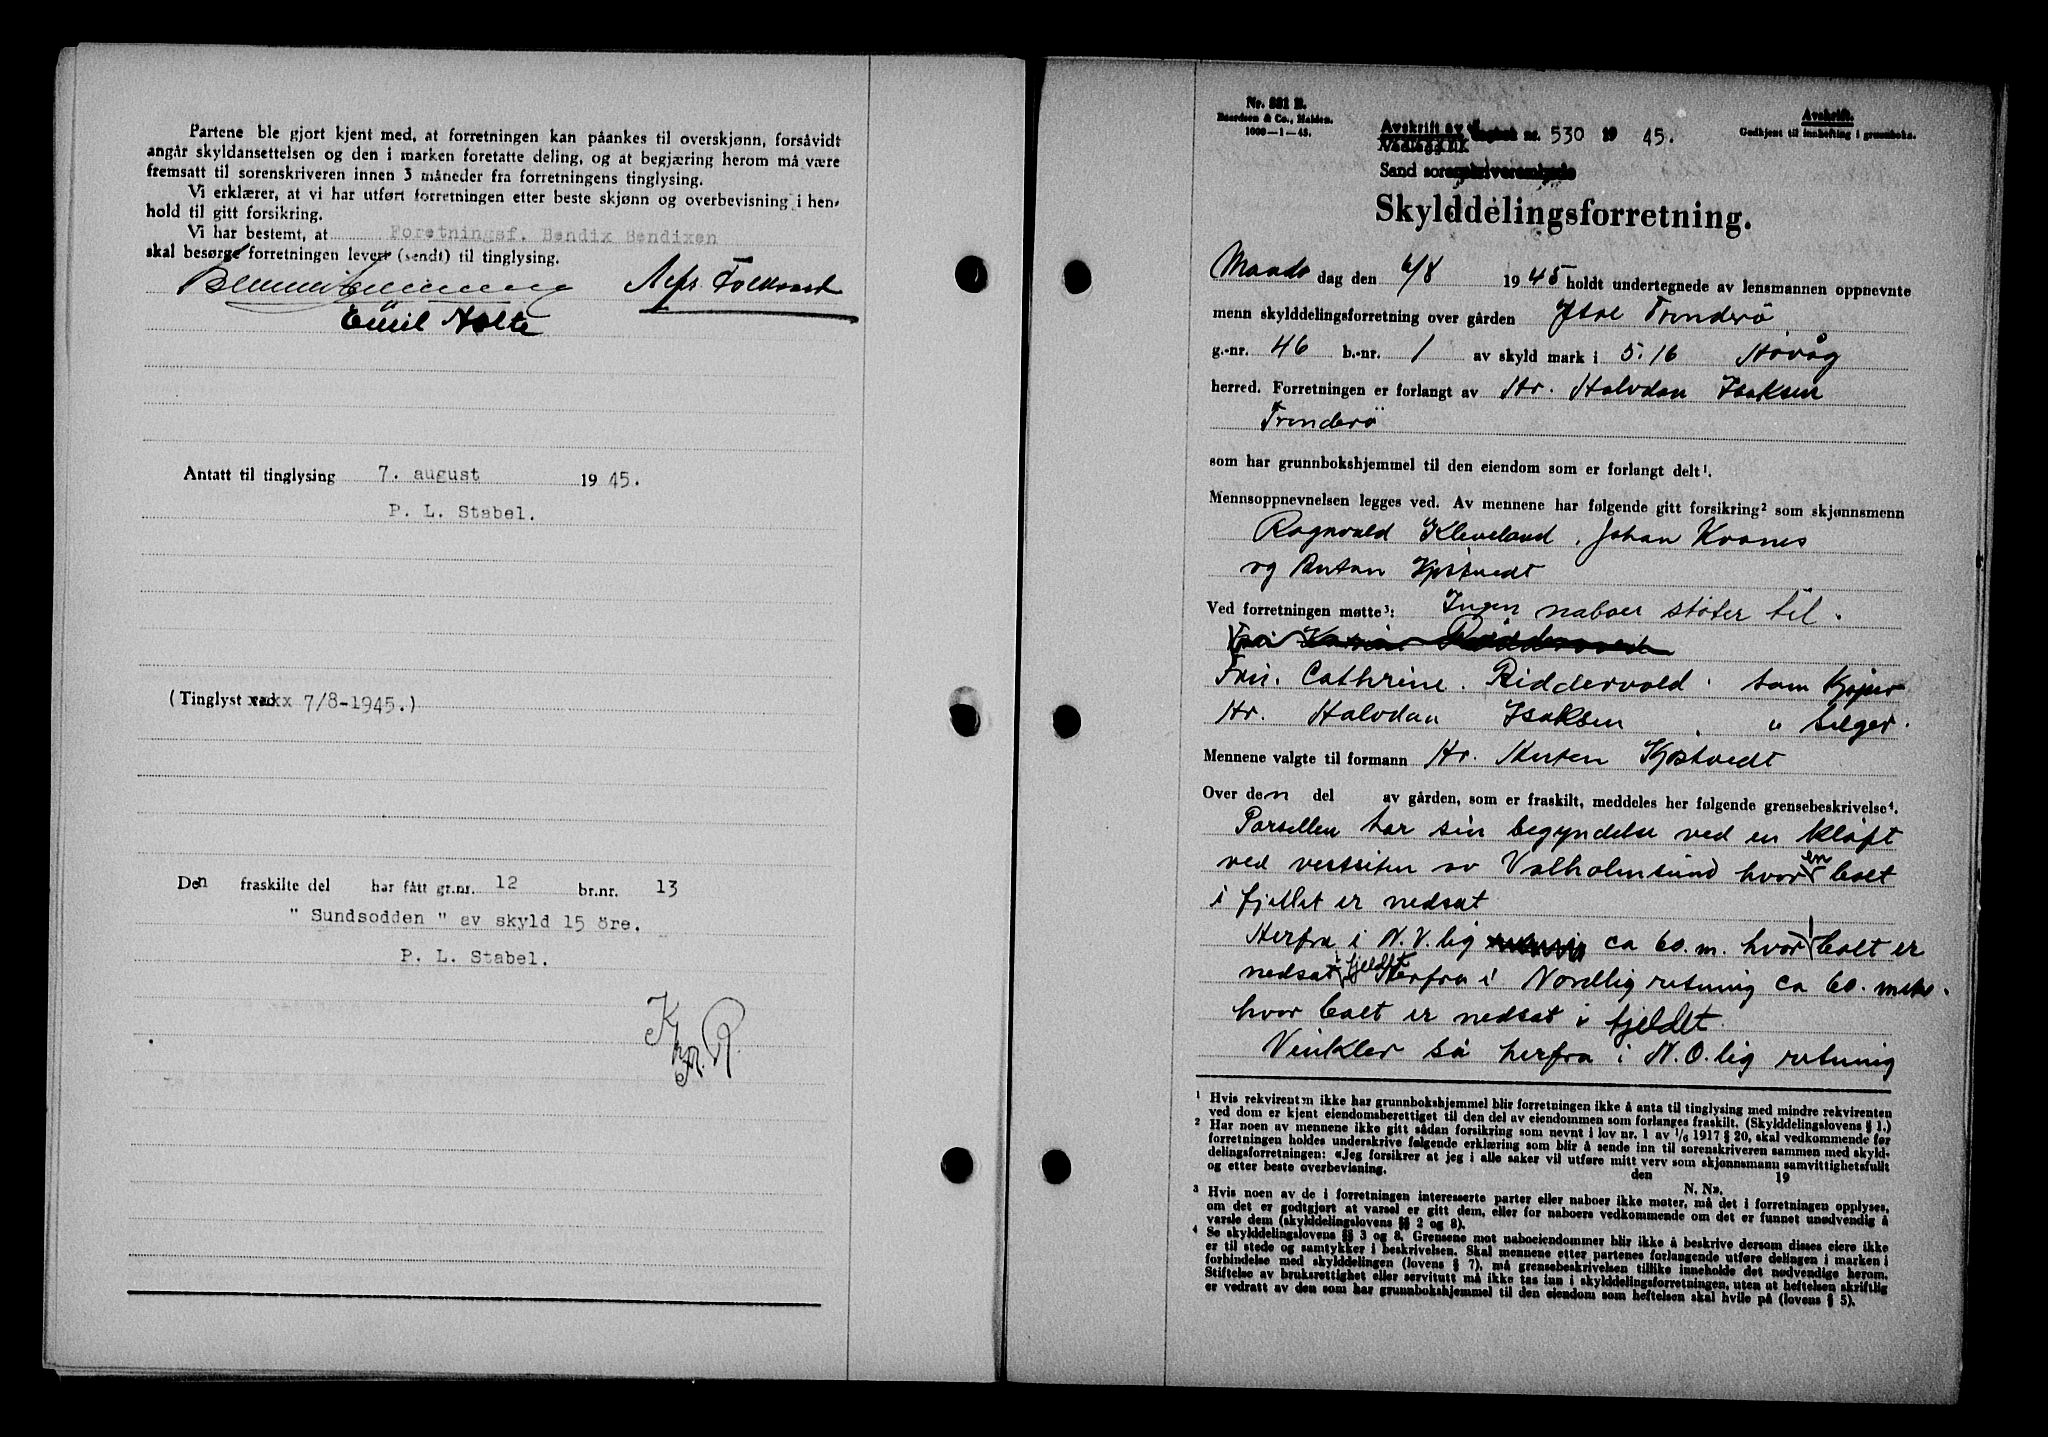 Partene ble gjort kjent med, at forretningen kan påankes til overskjønn, forsåvidt
angår skyldansettelsen og den i marken foretatte deling, og at begjæring herom må være
fremsatt til sorenskriveren innen 3 måneder fra forretningens tinglysing.
Vi erklærer, at vi har utført forretningen etter beste skjønn og overbevisning i hen-
hold til gitt forsikring.
Vi har bestemt, at Foretningsf. Bendix Bendixen
skal besørge forretningen levert (sendt) til tinglysing.
Emil Nolte
Antatt til tinglysing 7. august 1945.
P. L. Stabel.
(Tinglyst 7/8-1945.)
Den fraskilte del har fått gr.nr. 12 br.nr. 13
" Sundsodden " av skyld 15 öre.
P. L. Stabel.
Nr. 881 B.
Baardsen & Co., Halden.
1000-1-45.
Avskrift.
Godkjent til innhefting i grunnboka.
Avskrift av dagbok nr. 530 1945.
Vedlegg nr.
Sand sorenskriverembede
Skylddelingsforretning.
Manda dag den 6/8 1945 holdt undertegnede av lensmannen oppnevnte
menn skylddelingsforretning over gården Ytre Trinderö
g.-nr. 46 b.-nr. 1 av skyld mark i 5.16 Høvåg
herred. Forretningen er forlangt av Hr. Halvdan Isaksen
Trinderö
som har grunnbokshjemmel til den eiendom som er forlangt delt¹.
Mennsoppnevnelsen legges ved. Av mennene har følgende gitt forsikring² som skjønnsmenn
Ragnvald Kleveland, Johan Kvanes
og Anton Kjøstvedt
Ved forretningen møtte³: Ingen naboer støter til.
Frü. Cathrine. Riddervold. som Kjøper
Hr. Halvdan Isaksen " selger.
Mennene valgte til formann Hr. Kjøstvedt
Over den del av gården, som er fraskilt, meddeles her følgende grensebeskrivelse⁴.
Parsellen har sin begyndelse ved en kløft
ved vestsiten av Valholmsund hvor en bolt
i fjellet er nedsat
Herfra i N.V.lig ca 60. m. hvor bolt er
nedsat i fjeldet Herfra i Nordlig retning ca 60. meter.
hvor bolt er nedsat i fjeldet.
Vinkler så herfra i N.O.lig retning
¹ Hvis rekvirenten ikke har grunnbokshjemmel blir forretningen ikke å anta til tinglysing med mindre rekvirenten
ved dom er kjent eiendomsberettiget til den del av eiendommen som forlanges fraskilt. (Skylddelingslovens § 1.)
² Har noen av mennene ikke gitt sådan forsikring som nevnt i lov nr. 1 av 1/6 1917 § 20, skal vedkommende før
forretningen holdes underskrive følgende erklæring som blir å sende inn til sorenskriveren sammen med skyld-
delingsforretningen: «Jeg forsikrer at jeg i alle saker vil utføre mitt verv som skjønnsmann samvittighetsfullt
og etter beste overbevisning.
den 19
N. N».
³ Hvis noen av de i forretningen interesserte parter eller naboer ikke møter, må det i forretningen opplyses,
om det er godtgjort at varsel er gitt dem, eller for naboers vedkommende om det er funnet unødvendig å
varsle dem (skylddelingslovens §§ 2 og 8).
⁴ Se skylddelingslovens §§ 3 og 8. Grensene mot naboeiendommer blir ikke å beskrive dersom disses eiere ikke
er til stede og samtykker i beskrivelsen. Skal mennene etter partenes forlangende utføre delingen i marken i
forbindelse med skylddelingen (lovens § 7), må grensebeskrivelsen tillike inneholde det nødvendige herom.
Stiftelse av bruksrettighet eller servitutt må ikke tas inn i skylddelingsforretningen, uten at heftelsen skriftlig
er vedratt av den som har grunnbokshjemmel til den eiendom som heftelsen skal hvile på (lovens § 5).